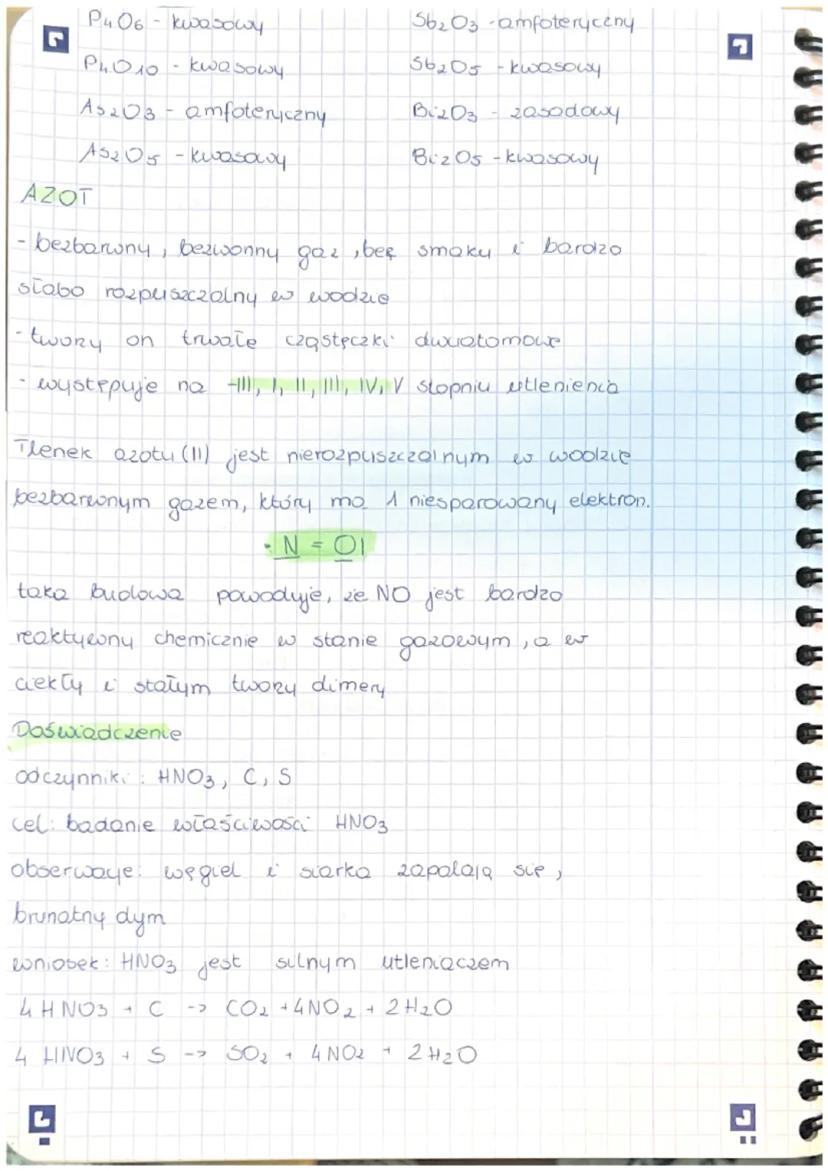 P4O6 - kwasowy
P4O10 - kwasowy
As2O3 - amfoteryczny
As2O5 - kwasowy
Sb2O3 - amfoteryczny
Sb2O5 - kwasowy
Bi2O3 - zasadowy
Bi2O5 - kwasowy
AZOT
- bezbarwny, bezwonny gaz, bez smaku i bardzo
słabo rozpuszczalny w wodzie
- tworzy on trwałe cząsteczki dwuatomowe
- występuje na -III, I, II, III, IV, V stopniu utlenienia
Tlenek azotu (II) jest nierozpuszczalnym w wodzie
bezbarwnym gazem, który ma 1 niesparowany elektron.
· N = O|
taka budowa powoduje, że NO jest bardzo
reaktywny chemicznie w stanie gazowym, a w
ciekły i stałym tworzy dimery
Doświadczenie
odczynniki: HNO3, C, S
cel: badanie właściwości HNO3
obserwacje: węgiel i siarka zapalają się,
brunatny dym
wniosek: HNO3 jest silnym utleniaczem
4 HNO3 + C -> CO2 + 4NO2 + 2H2O
4 HNO3 + S -> SO2 + 4NO2 + 2H2O